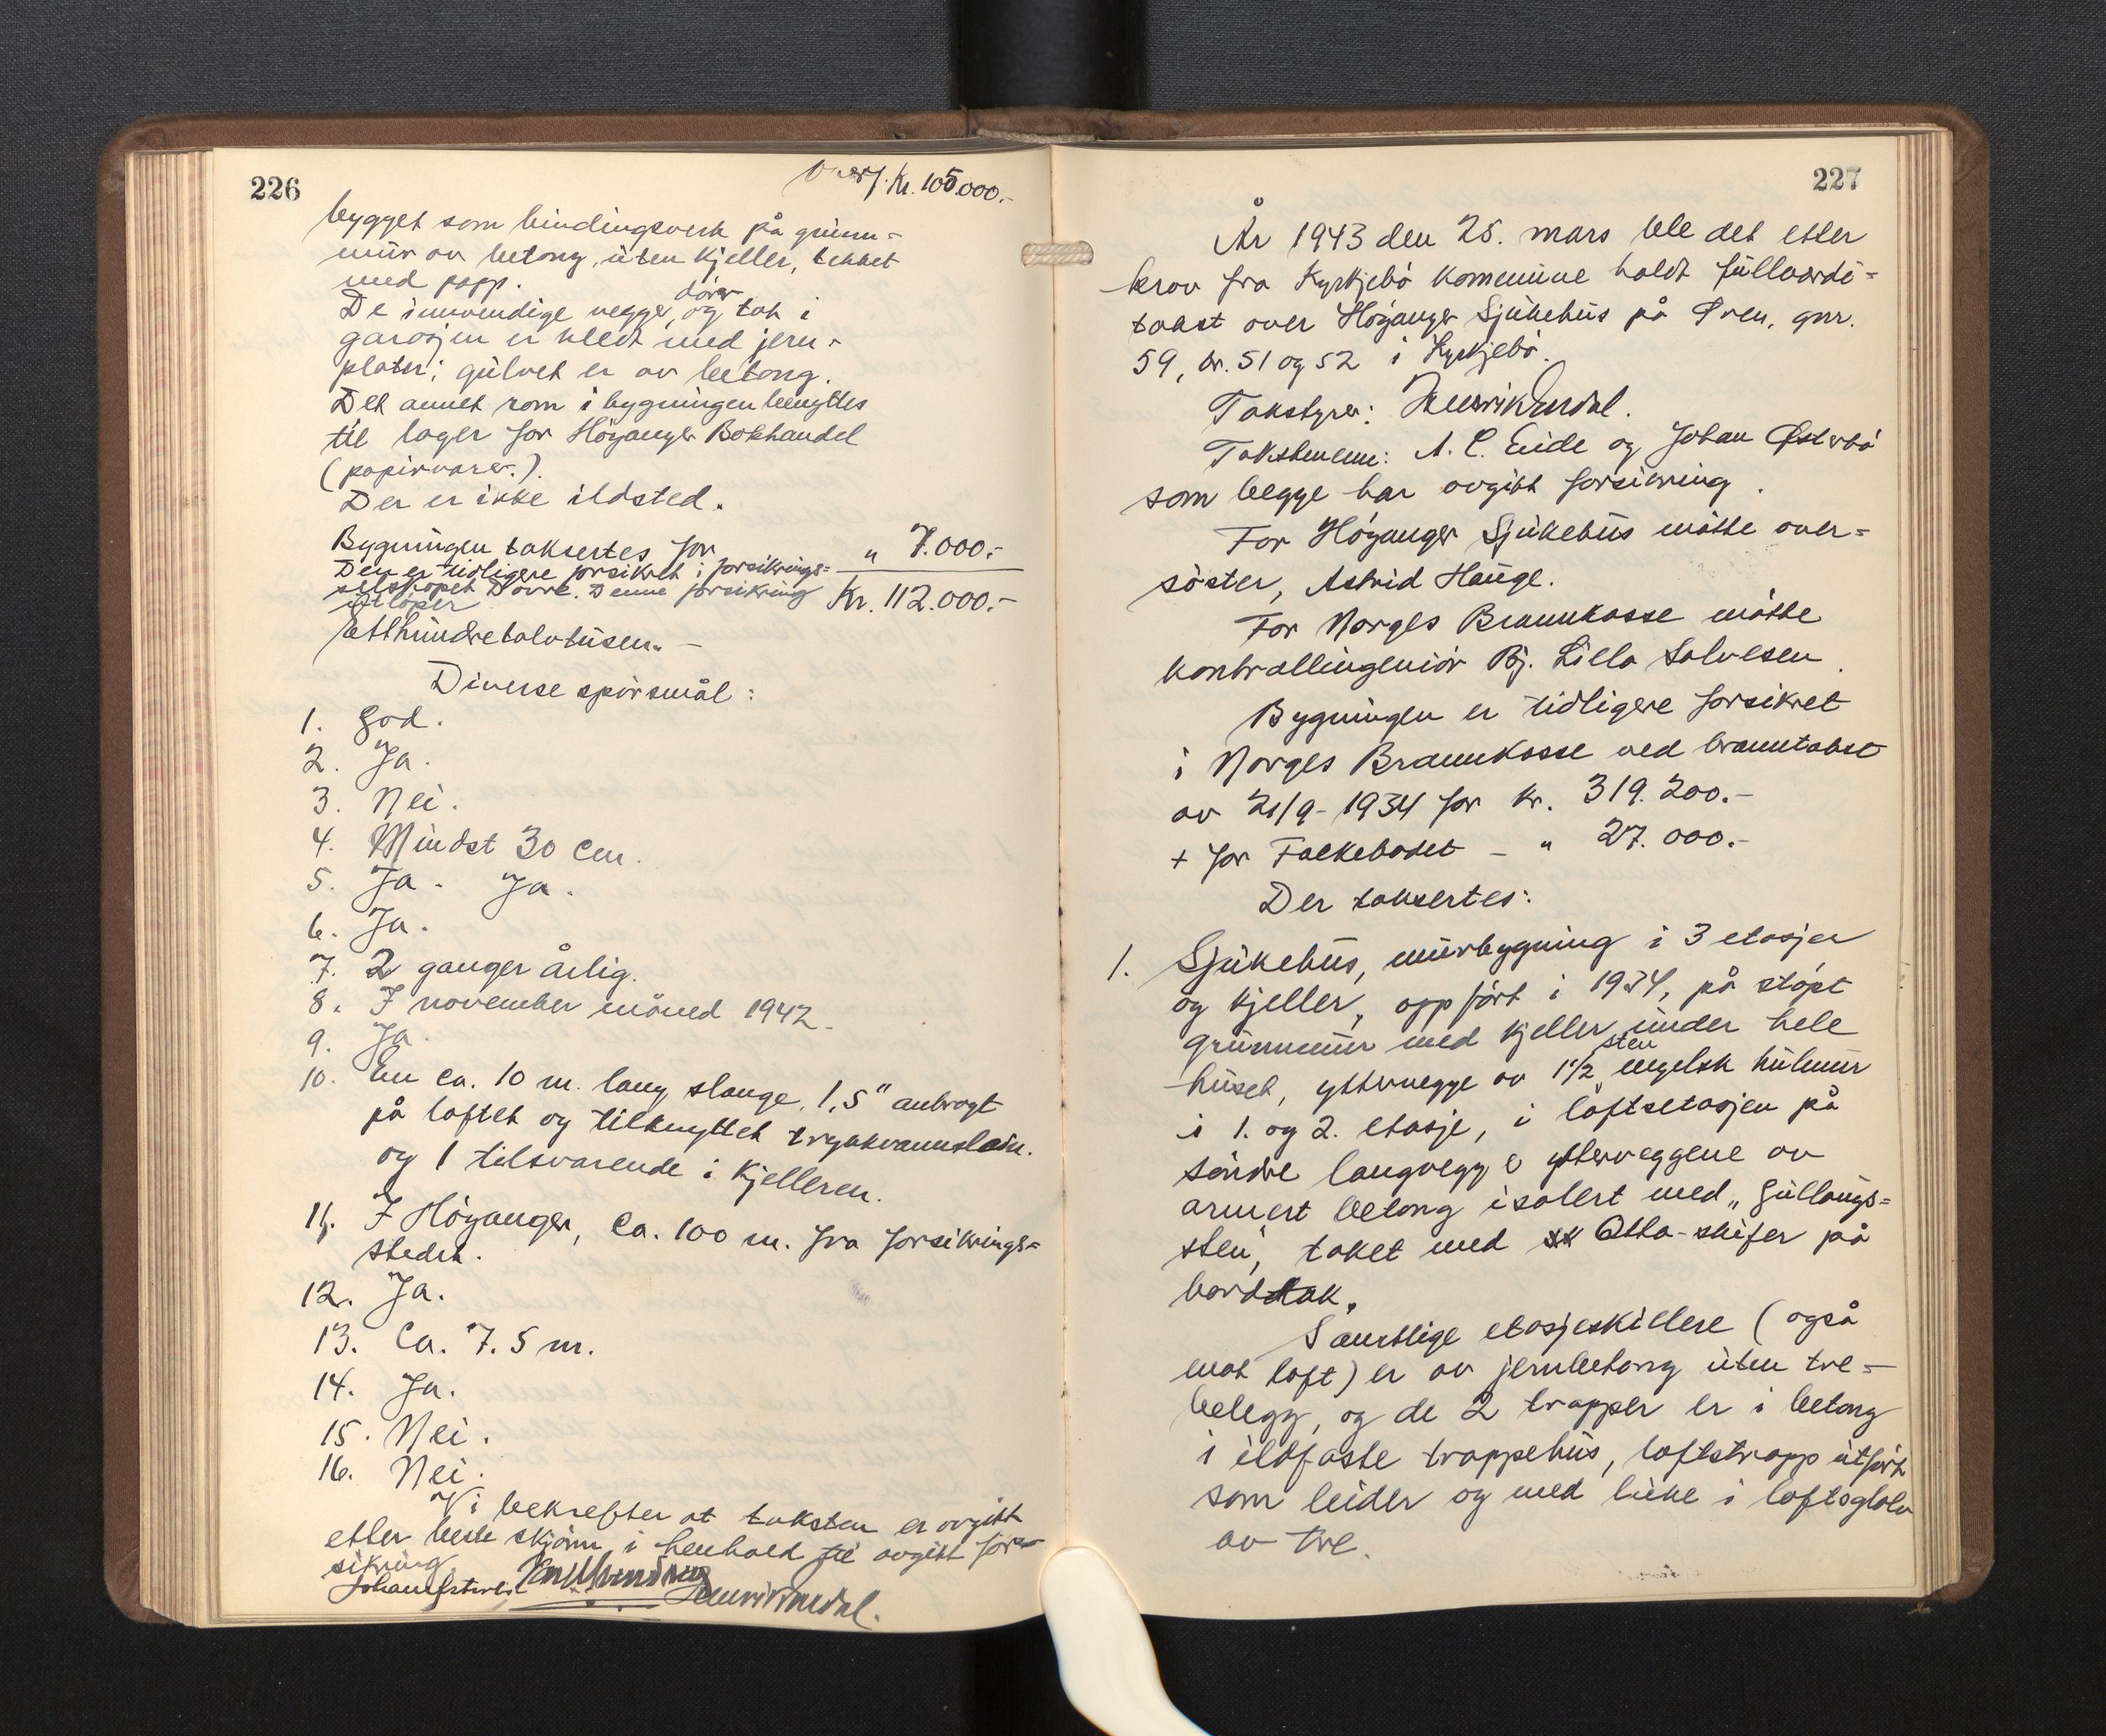 226
Overf. Kr. 105.000.-
bygget som bindingsverk på grunn-
mur av betong, uten kjeller, tekket
med papp.
De innvendige vegger, dører og tak i
garasjen er kledt med jern-
plater; gulvet er av betong.
Det annet rom i bygningen benyttes
til lager for Höyanger Bokhandel
(papirvarer.).
Der er ikke ildsted.
Bygningen taksertes for " 7.000.-
Den er tidligere forsikret i forsikrings-
selskapet Dovre. Denne forsikring Kr. 112.000.-
utløper
Etthundretolvtusen. -
Diverse spørsmål:
1. God.
2. Ja.
3. Nei.
4. Mindst 30 cm.
5. Ja. Ja.
6. Ja.
7. 2 ganger årlig.
8. I november måned 1942.
9. Ja.
10. En ca. 10 m. lang slange, 1,5" anbragt
på loftet og tilknyttet trykkvannsledn.
og 1 tilsvarende i kjelleren.
11. I Höyanger, ca. 100 m. fra forsikrings-
stedet.
12. Ja.
13. Ca. 7.5 m.
14. Ja.
15. Nei.
16. Nei.
Vi bekrefter at taksten er avgitt
etter beste skjønn i henhold til avgitt for-
sikring.
Johan Østerbö Henrik Indal.
227
År 1943 den 25. mars ble det etter
krav fra Kyrkjebö kommune holdt fullverdi-
takst over Höyanger Sjukehus på Øren, gnr.
59, br. 51 og 52 i Kyrkjebö.
Takstyrer: Henrik Indal.
Takstmenn: A. C. Eide og Johan Østerbö
som begge har avgitt forsikring.
For Höyanger Sjukehus møtte over-
söster, Astrid Hauge.
For Norges Brannkasse møtte
kontrollingeniör Bj. Lilla Salvesen.
Bygningen er tidligere forsikret
i Norges Brannkasse ved branntakst
av 21/9-1934 for kr. 319.200.-
+ for Falkebadet - " 27.000.-
Der taksertes:
1. Sjukehus, murbygning i 3 etasjer
og kjeller, oppført i 1934, på støpt
grunnmur med kjeller under hele
huset, yttervegge av 1 1/2 sten engelsk hulmur
i 1. og 2. etasje, i loftsetasjen på
söndre langvegg er ytterveggene av
armert betong isolert med „Gullaugs-
sten", taket med Otta-skifer på
bordtak.
Samtlige etasjeskillere (også
mot loft) er av jernbetong uten tre-
belegg, og de 2 trapper er i betong
i ildfaste trappehus, loftstrapp utført
som leider og med luke i loftsgolv
av tre.